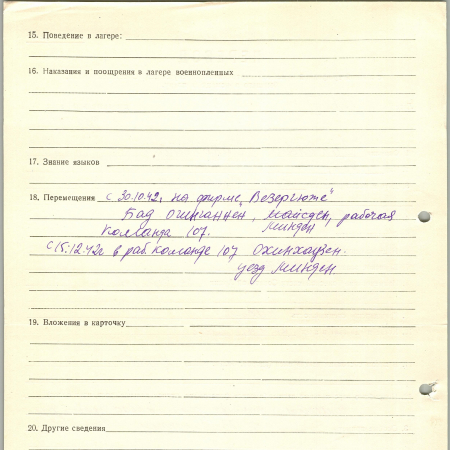 15. Поведение в лагере:
16. Наказания и поощрения в лагере военнопленных
17. Знание языков
18. Перемещения с 30.10.42г. на фирме „Везергюте"
Бад , , рабочая
команда 107. Минден
с 15.12.42г в раб. команде 107 Оxинхаузен.
уезд Минден.
19. Вложения в карточку
20. Другие сведения